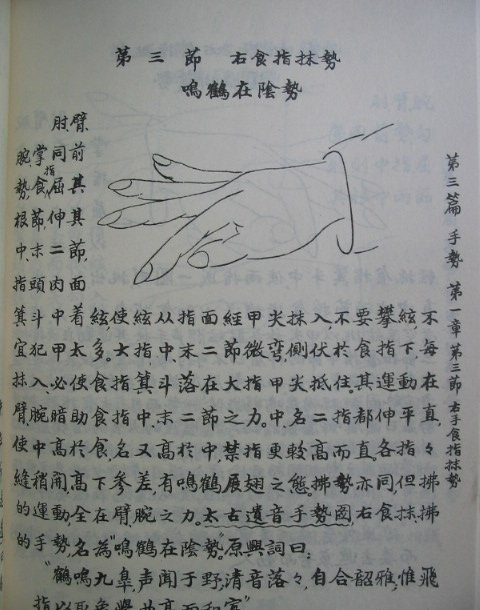 第三節 右食指抹勢
鳴鶴在陰勢
肘、臂
腕、掌同前
勢,食指屈其
根節,伸其
中、末二節,
指頭肉面
箕斗中着絃,使絃从指面經甲尖抹入,不要攀絃,不
宜犯甲太多。大指中、末二節微彎,側伏於食指下,每
抹入,必使食指箕斗落在大指甲尖抵住。其運動在
臂腕,暗助食指中、末二節之力。中、名二指都伸平直,
使中高於食,名又高於中,禁指更較高而直。各指々
縫稍開,高下参差,有鳴鶴展翅之態。拂勢亦同,但拂
的運動全在臂腕之力。太古遺音手勢圖,右食抹、拂
的手勢,名為“鳴鶴在陰勢”。原興詞曰:
“鶴鳴九皋,声聞于野;清音落々,自合韶雅;惟飛
指以取象,覺曲高而和寡。
第三篇 手勢 第一章 第三節 右手食指抹勢